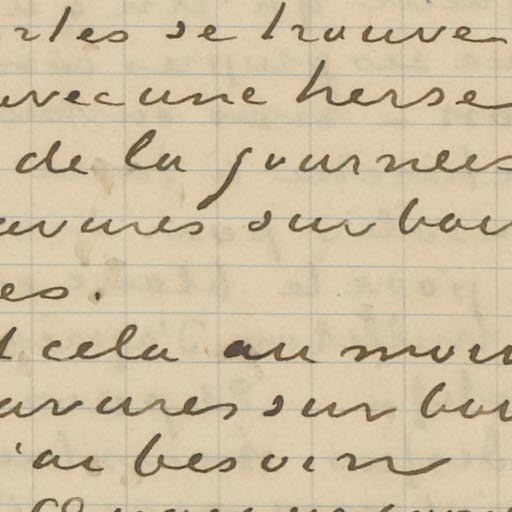 rtes se trouve
avec une herse
de la journées
avures sur boi
es.
t cela au moin
avures sur boi
'ai besoin